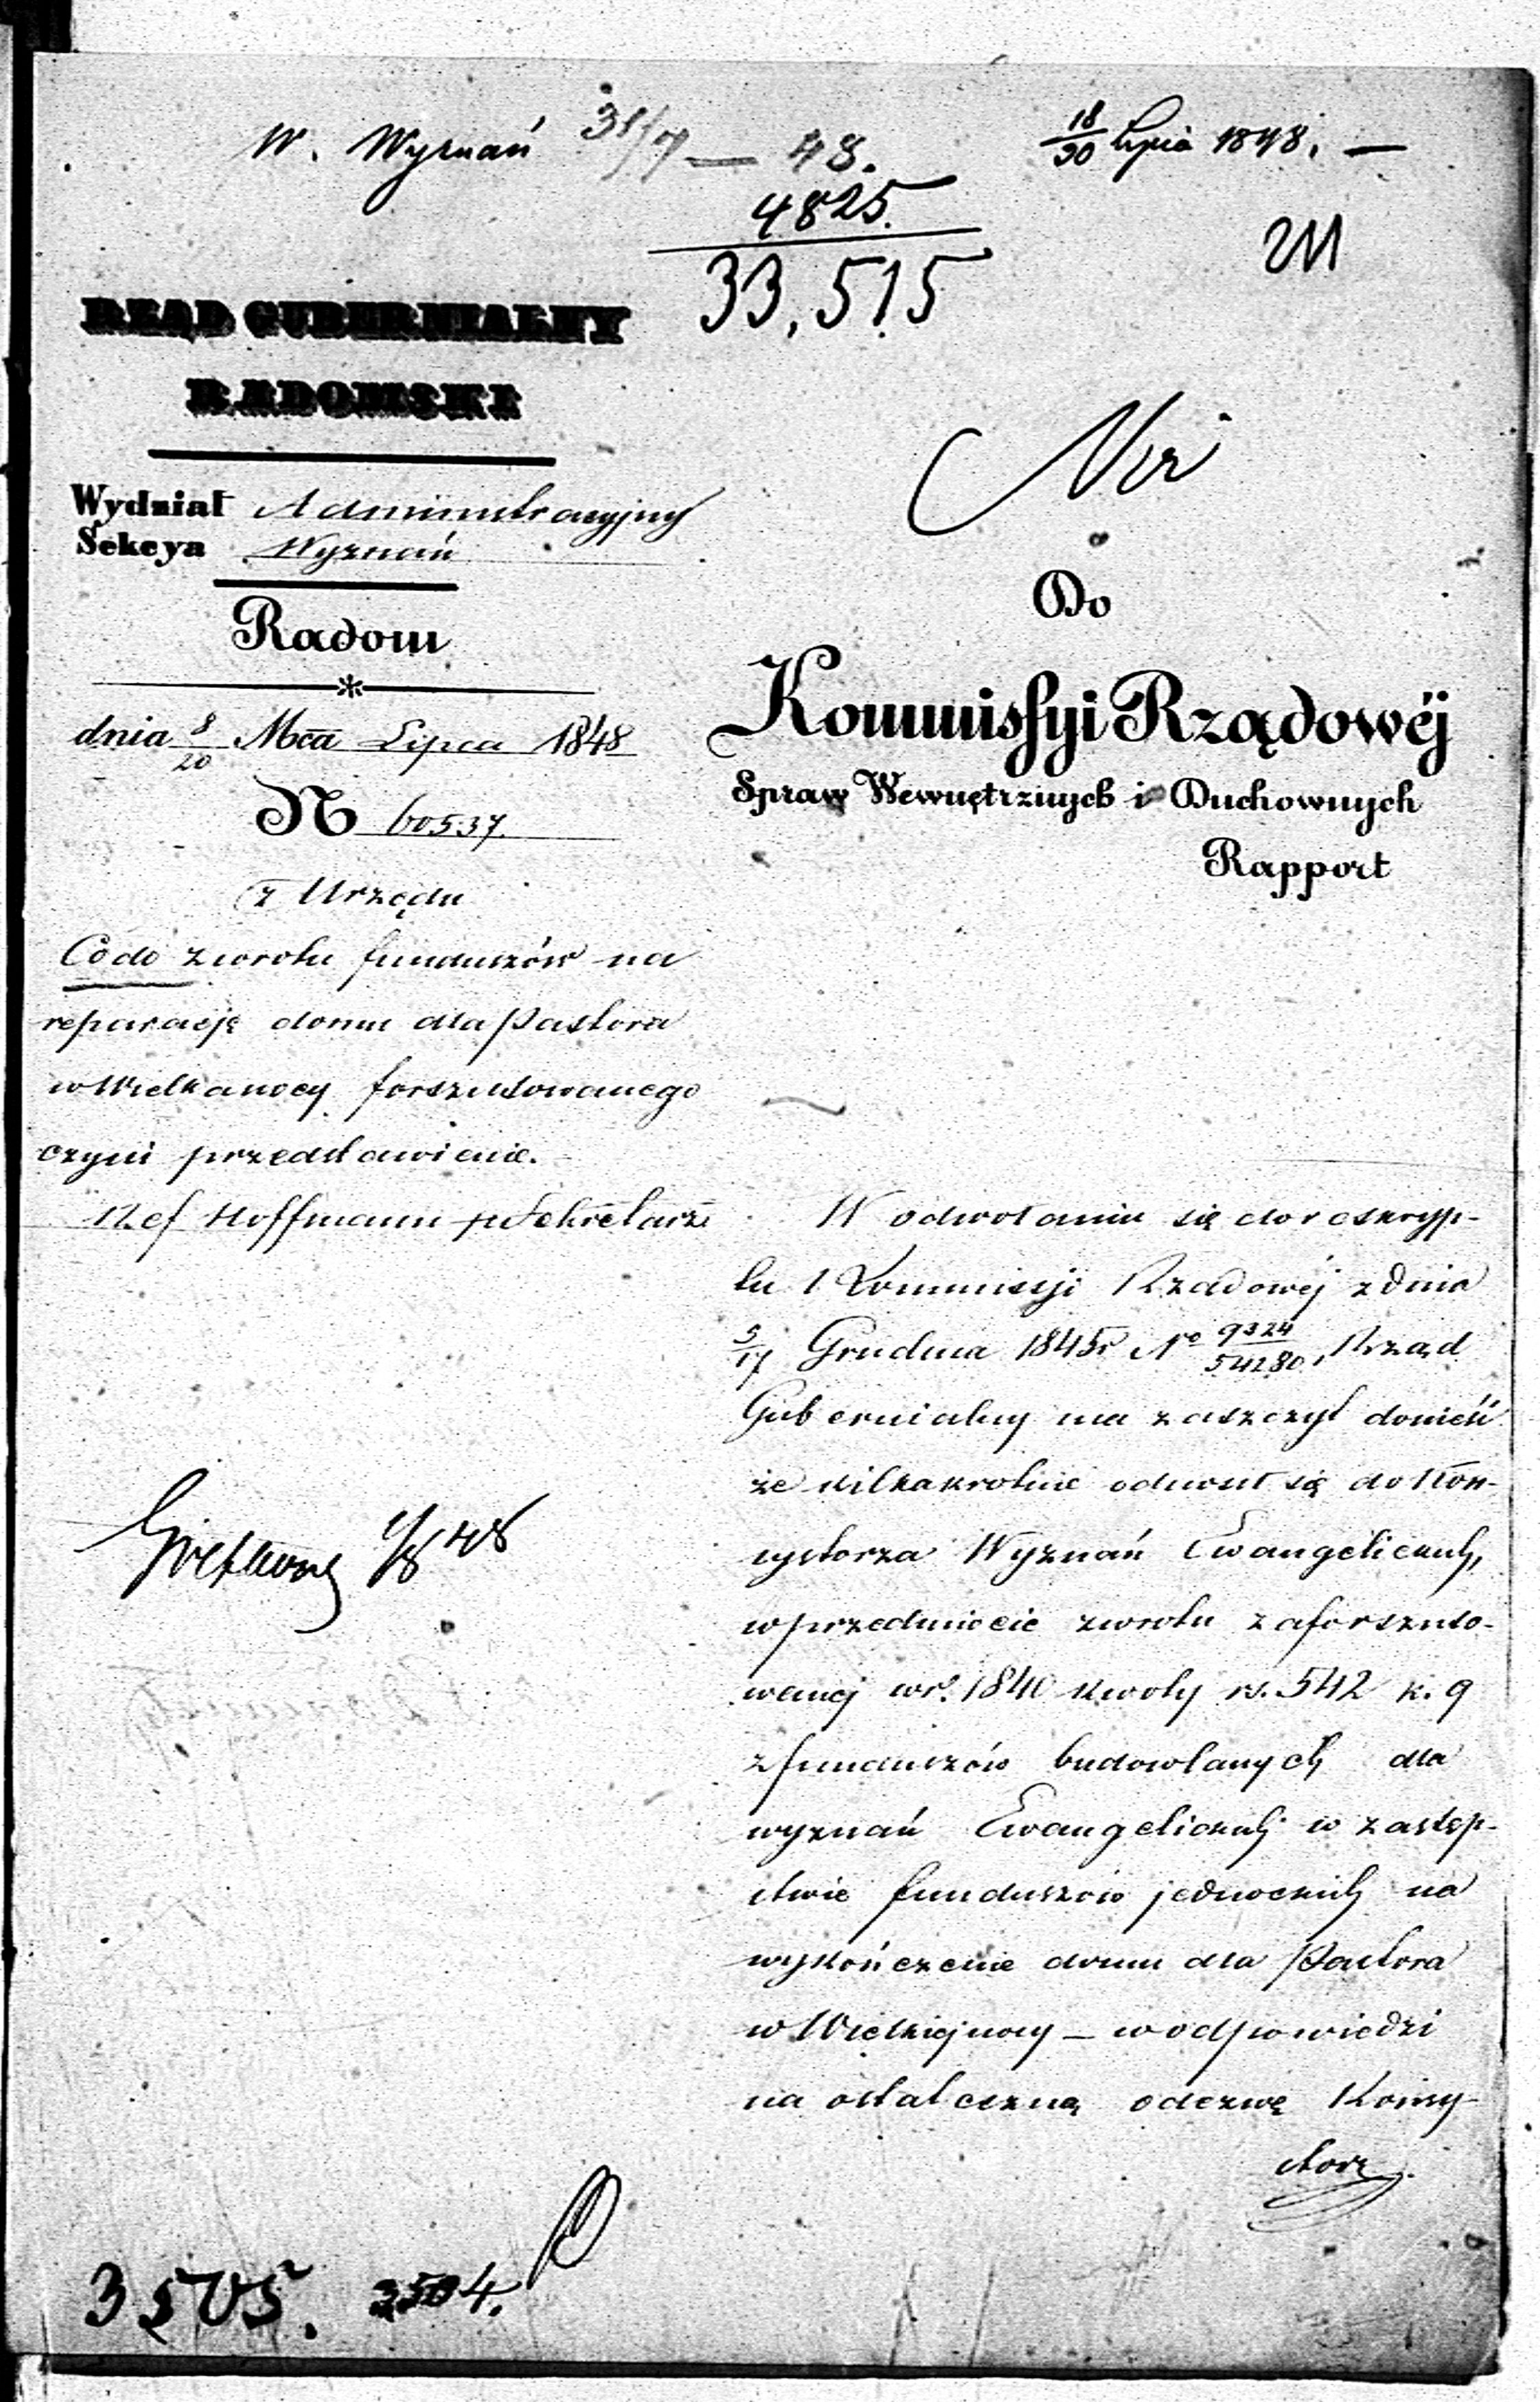 W. Wyznań 31/7 — 48.
18/30 Lipca 1848. —
4825.
33,515
211
RZĄD GUBERNIALNY
RADOMSKI
Wydział Administracyjny
Sekcya Wyznań
Radom
dnia 8/20 Mca Lipca 1848
N 60537.
Z Urzędu
Co do zwrotu funduszów na
reparacją domu dla Pastora
w Wielkanocy forszusowanego
czyni przedstawienie.
Ref Hoffmann Sekretarz
Do
Kommissyi Rządowéj
Spraw Wewnętrznych i Duchownych
Rapport
W odwołaniu się do reskryp-
tu Kommissji Rządowéj z dnia
5/17 Grudnia 1845r No 9324/54280, Rząd
Gubernialny ma zaszczyt donieść
że kilkakrotnie odnosił się do Kon-
systorza Wyznań Ewangelickich,
w przedmiocie zwrotu zaforszuso-
wanej w r. 1840 kwoty rs. 542 k. 9
z funduszów budowlanych dla
wyznań Ewangelickich w zastęp-
stwie funduszów jednockich na
wykończenie domu dla Pastora
w Wielkiejnocy — w odpowiedzi
na ostateczną odezwę Konsy-
storz
3505. 3504.